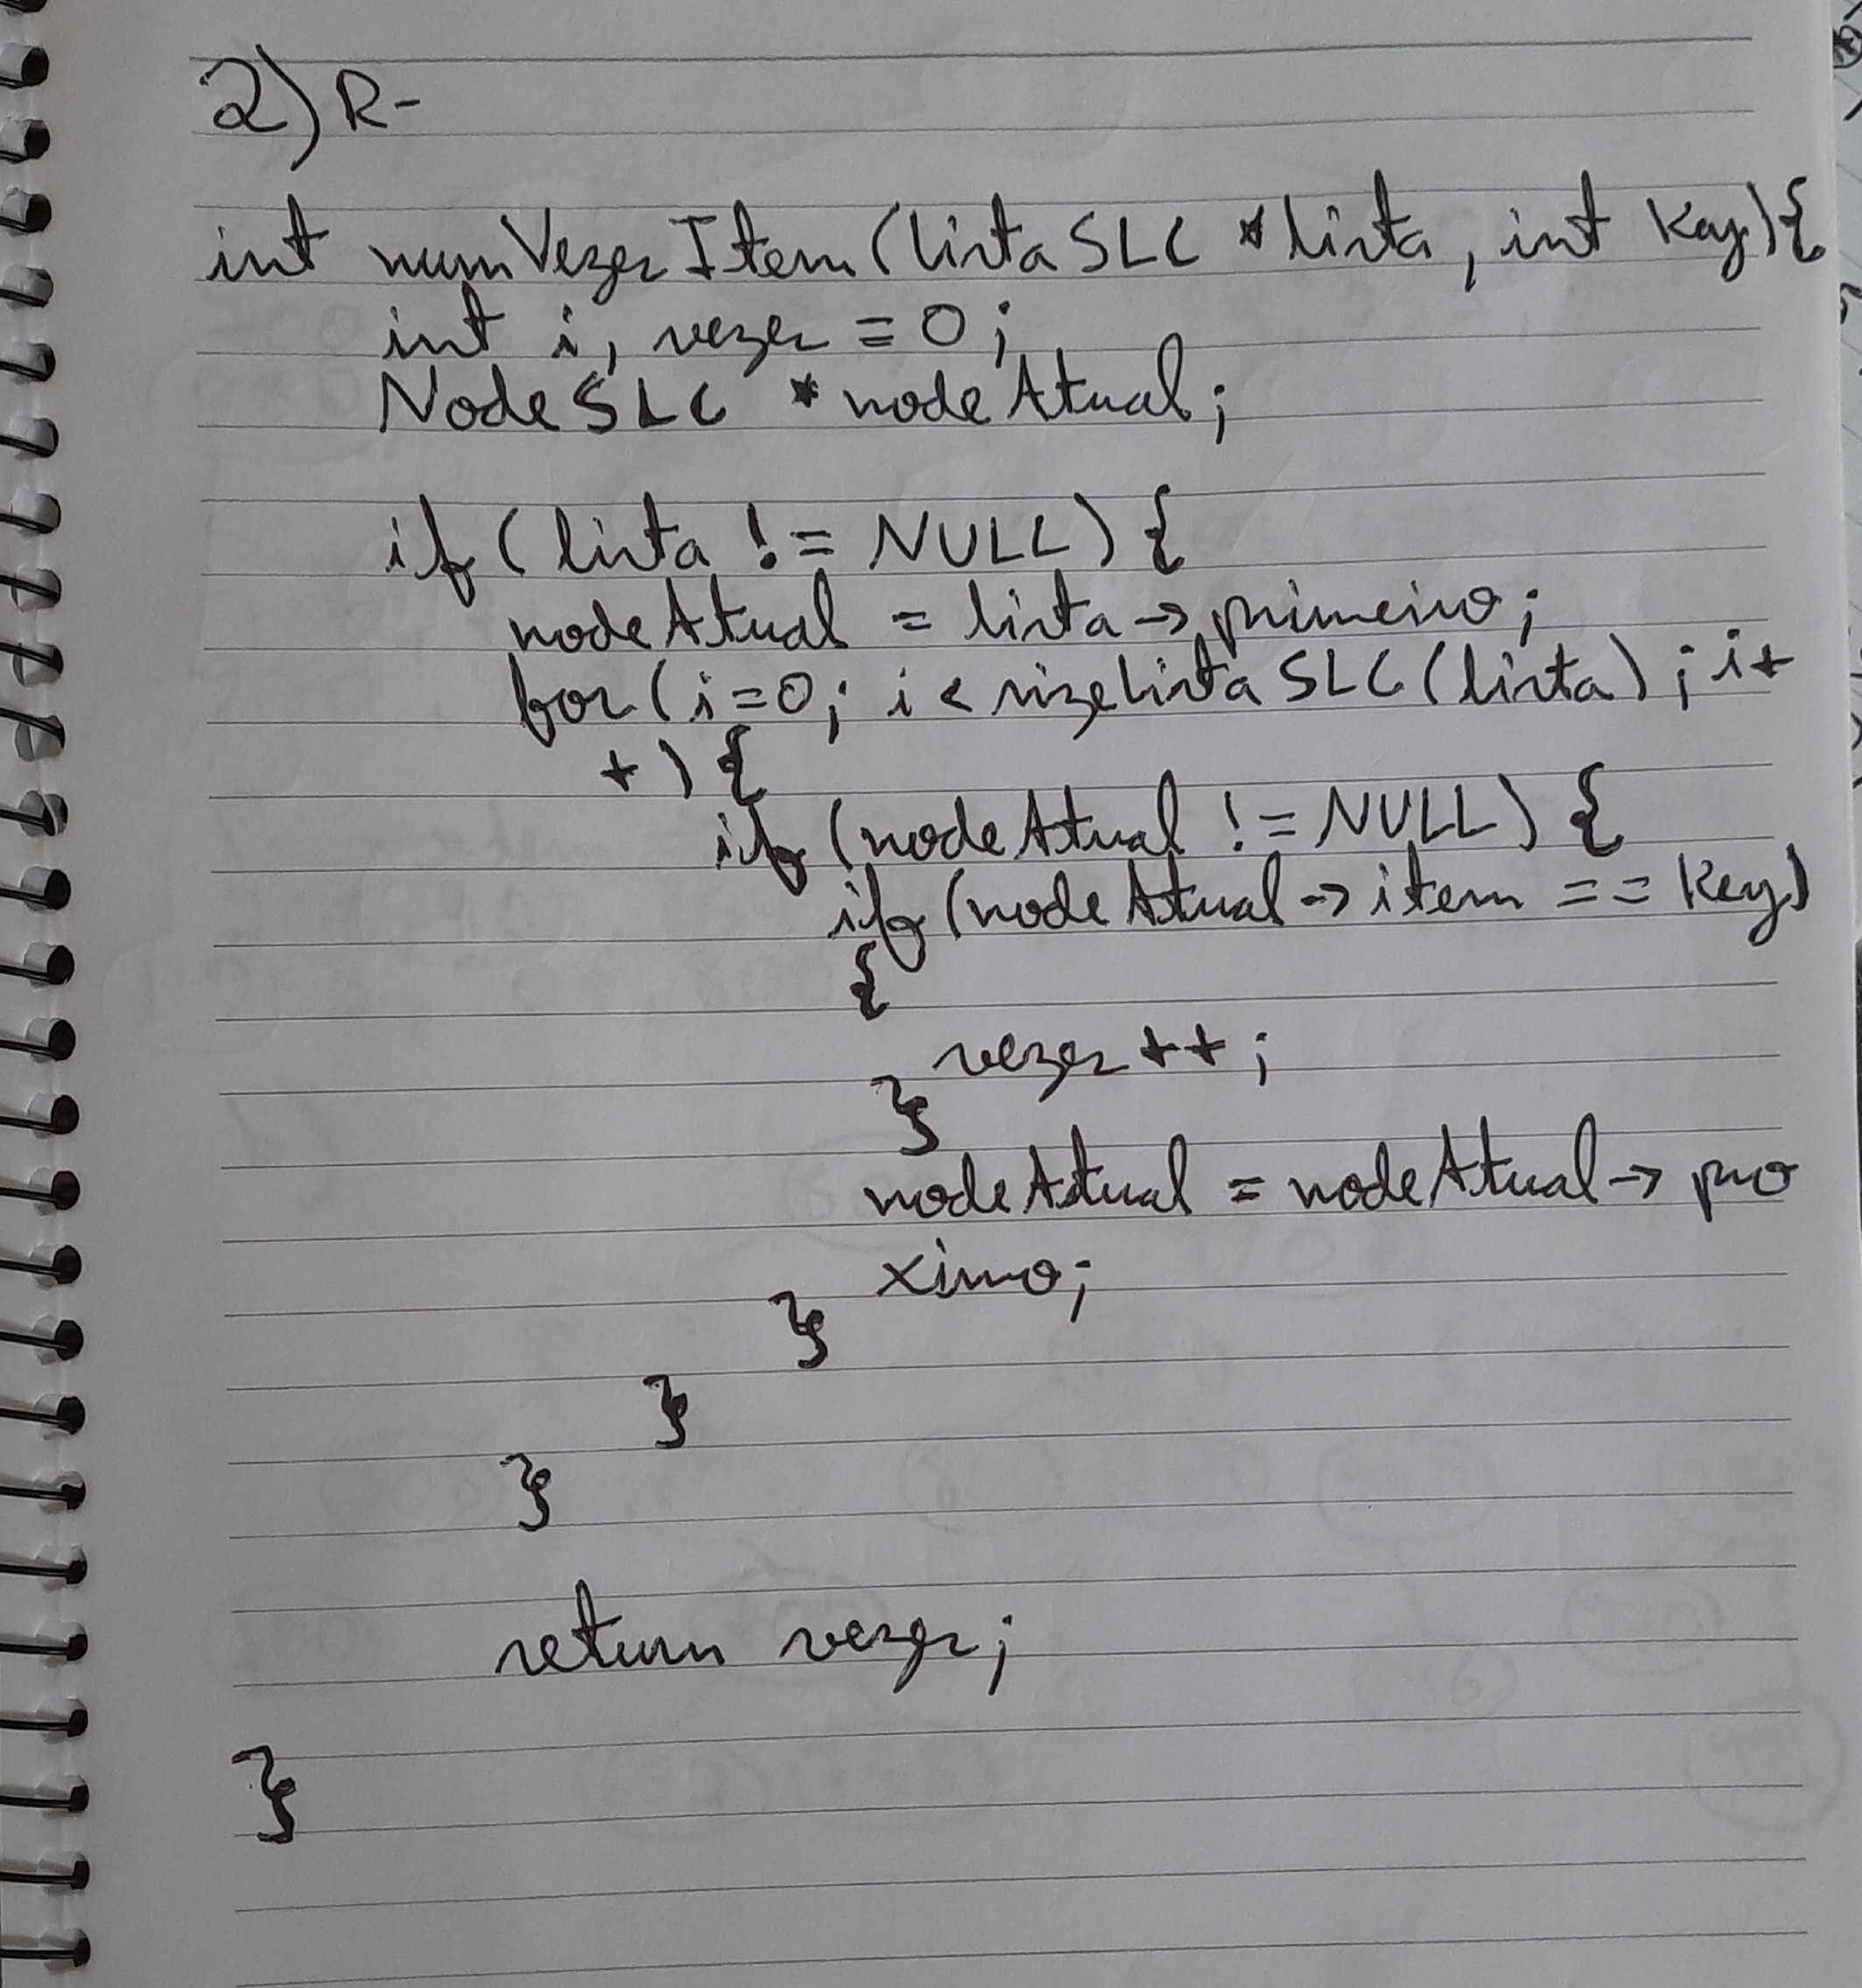 2) R-
int numVezesItem(listaSLC *lista, int key){
int i, vezes = 0;
NodeSLC *nodeAtual;
if(lista != NULL) {
nodeAtual = lista->primeiro;
for(i=0; i < sizeListaSLC(lista); i+
+) {
if (nodeAtual != NULL) {
if(nodeAtual->item == key)
{
vezes++;
}
nodeAtual = nodeAtual->pro
ximo;
}
}
}
return vezes;
}